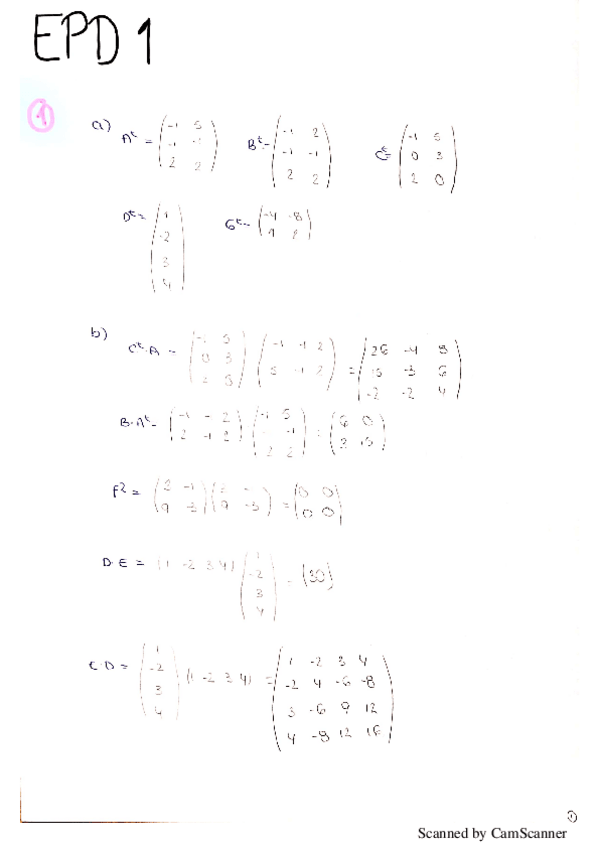 EPD 1
1
a) Aᵗ = (-1 5; -1 -1; 2 2) Bᵗ = (-1 2; -1 -1; 2 2) Cᵗ = (-1 5; 0 3; 2 0)
Dᵗ = (1; -2; 3; 4) Gᵗ = (-4 -8; 9 )
b) Cᵗ·A = (-1 5; 0 3; ) (-1 -1 2; 5 -1 2) = (26 -4 8; 15 -3 6; -2 -2 4)
B·Aᵗ = (-1 - 2; 2 -1 2) (-1 5; -1; 2 2) = (6 0; 2 15)
F² = (3 -1; 9 -3) (3 -; 9 -3) = (0 0; 0 0)
D·E = (1 -2 3 4) (1; -2; 3; 4) = (30)
E·D = (1; -2; 3; 4) (1 -2 3 4) = (1 -2 3 4; -2 4 -6 -8; 3 -6 9 12; 4 -8 12 16)
1
Scanned by CamScanner